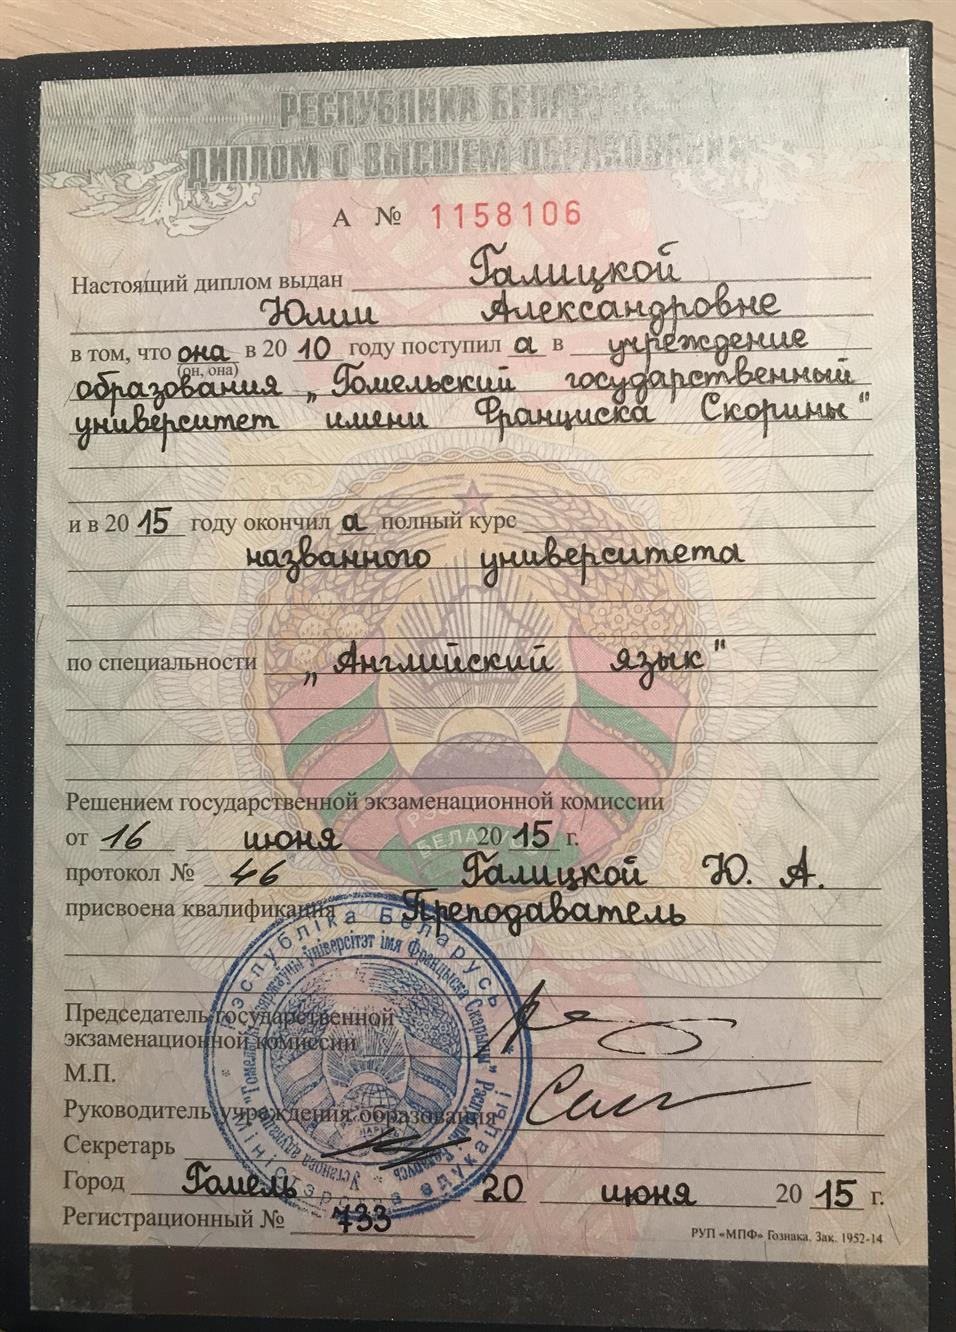 РЕСПУБЛИКА БЕЛАРУСЬ
ДИПЛОМ О ВЫСШЕМ ОБРАЗОВАНИИ
А № 1158106
Настоящий диплом выдан Галицкой
Юлии Александровне
в том, что она в 20 10 году поступил а в учреждение
(он, она)
образования „Гомельский государственный
университет имени Франциска Скорины"
и в 20 15 году окончил а полный курс
названного университета
по специальности „Английский язык"
Решением государственной экзаменационной комиссии
от 16 июня 20 15 г.
протокол № 46 Галицкой Ю. А.
присвоена квалификация Преподаватель
Председатель государственной
экзаменационной комиссии
М.П.
Руководитель учреждения образования
Секретарь
Город Гомель 20 июня 20 15 г.
Регистрационный № 733
РУП «МПФ» Гознака. Зак. 1952-14
Рэспубліка Беларусь
Міністэрства адукацыі
Установа адукацыі "Гомельскі дзяржаўны ўніверсітэт імя Францыска Скарыны" Рэспубліка Беларусь
БЕЛАРУСЬ